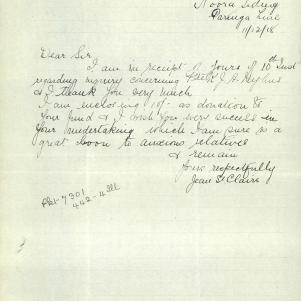 Noora Siding
Paringa Line
11/12/18
Dear Sir
I am in receipt of yours of 10th Inst
regarding inquiry concerning J. A.
& I thank you very much
I am enclosing 10/- as donation to
your fund & I wish you every success in
your undertaking which I am sure is a
great boon to anxious relatives
& remain
Yours respectfully
Jean St Claire
7301